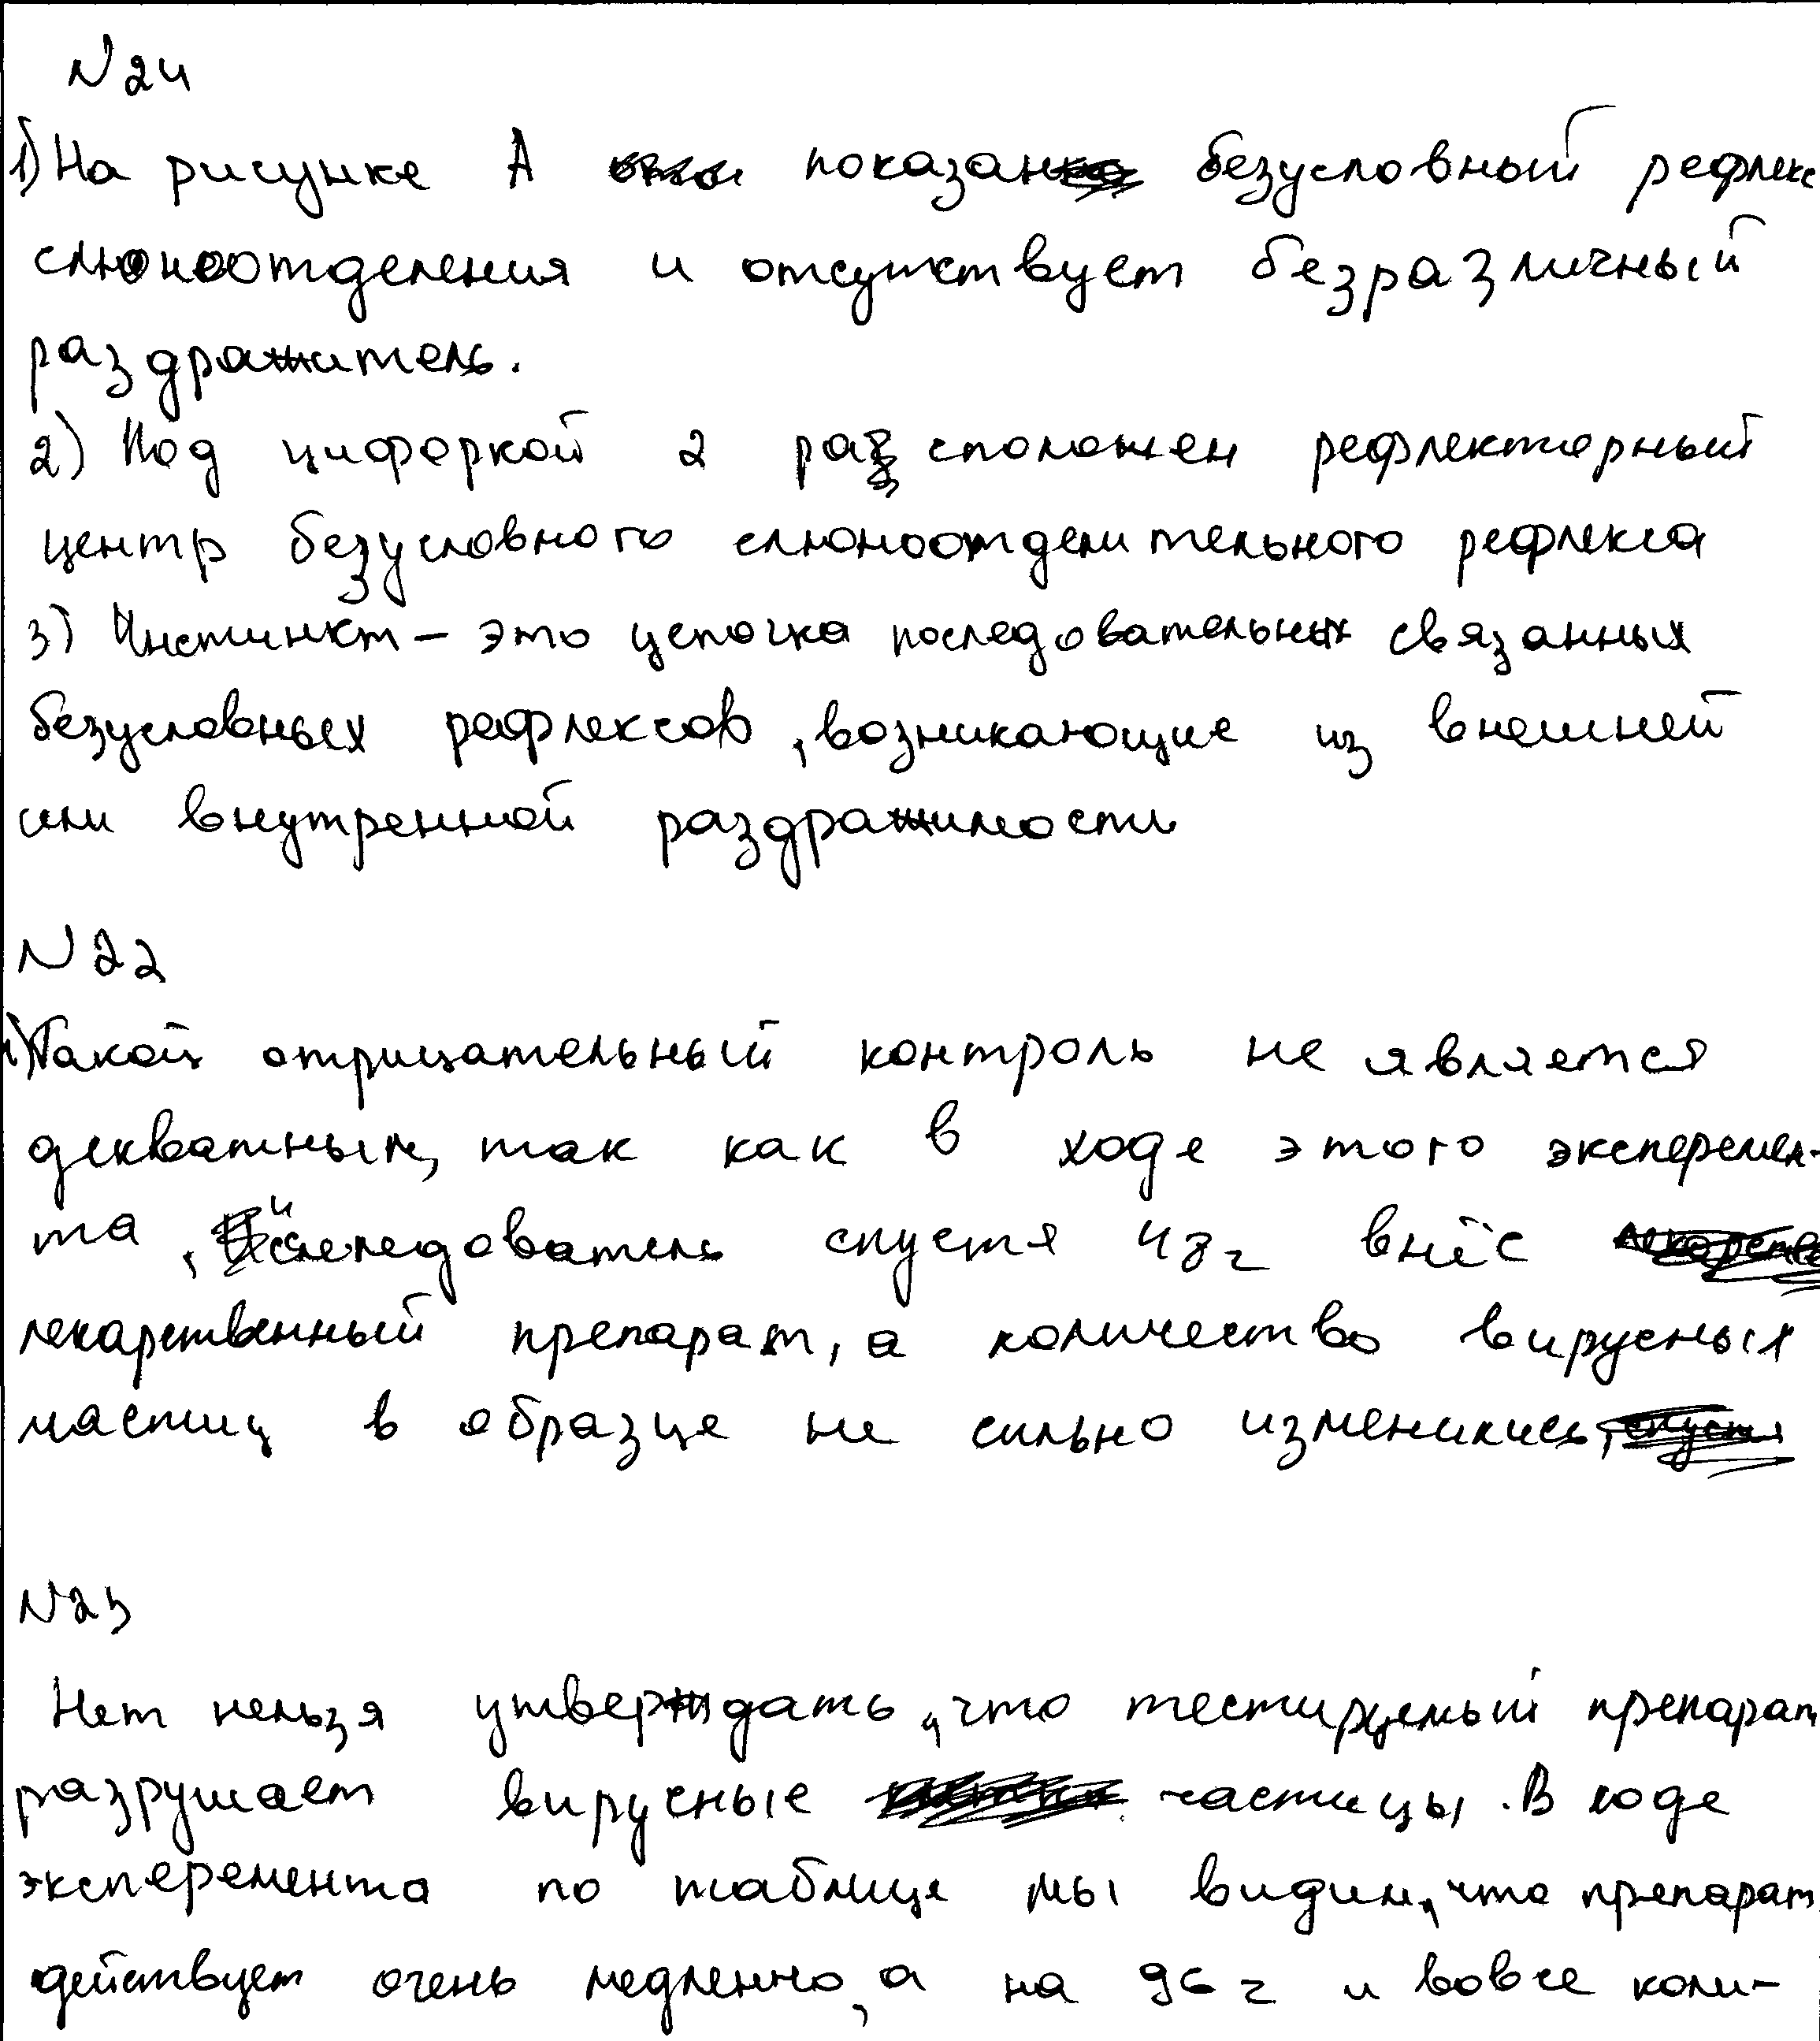 N24
1) На рисунке А показан безусловный рефлекс
слюноотделения и отсутствует безразличный
раздражитель.
2) Под циферкой 2 расположен рефлекторный
центр безусловного слюноотделительного рефлекса
3) Инстинкт – это цепочка последовательных связанных
безусловных рефлексов, возникающие из внешней
или внутренней раздражимости
N22
1) Такой отрицательный контроль не является
декватным, так как в ходе этого эксперемен-
та, исследователь спустя 48г внёс
лекарственный препарат, а количество вирусных
частиц в образце не сильно изменились,
N23
Нет нельзя утверждать, что тестируемый препарат
разрушает вирусные частицы. В ходе
эксперемента по таблице мы видим, что препарат
действует очень медленно, а на 96 г и вовсе коли-